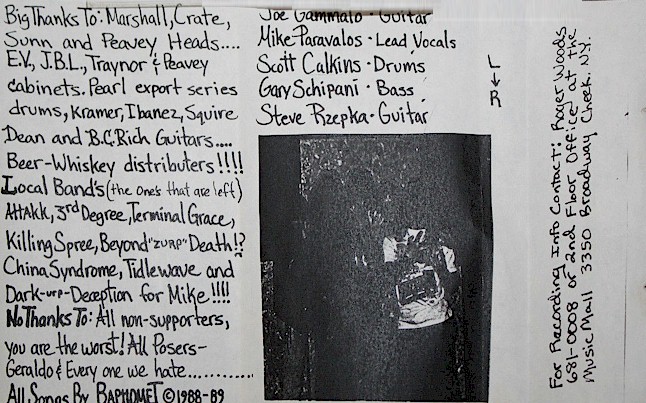 Big Thanks To: Marshall, Crate,
Sunn and Peavey Heads....
E.V., J.B.L., Traynor & Peavey
cabinets. Pearl export series
drums, Kramer, Ibanez, Squire
Dean and B.C. Rich Guitars....
Beer-Whiskey distributers!!!!
Local Band's (the one's that are left)
Attakk, 3rd Degree, Terminal Grace,
Killing Spree, Beyond "ZURP" Death!?
China Syndrome, Tidlewave and
Dark-urp-Deception for Mike!!!!
No Thanks To: All non-supporters,
you are the worst! All Posers-
Geraldo & Every one we hate............
All Songs By BAPHOMET ©1988-89
Joe Gammalo · Guitar
Mike Paravalos · Lead Vocals
Scott Calkins · Drums
Gary Schipani · Bass
Steve Rzepka · Guitar
L
→
R
For Recording Info Contact: Roger Woods
681-0008 or 2nd Floor Office at the
Music Mall 3350 Broadway Cheek. NY.